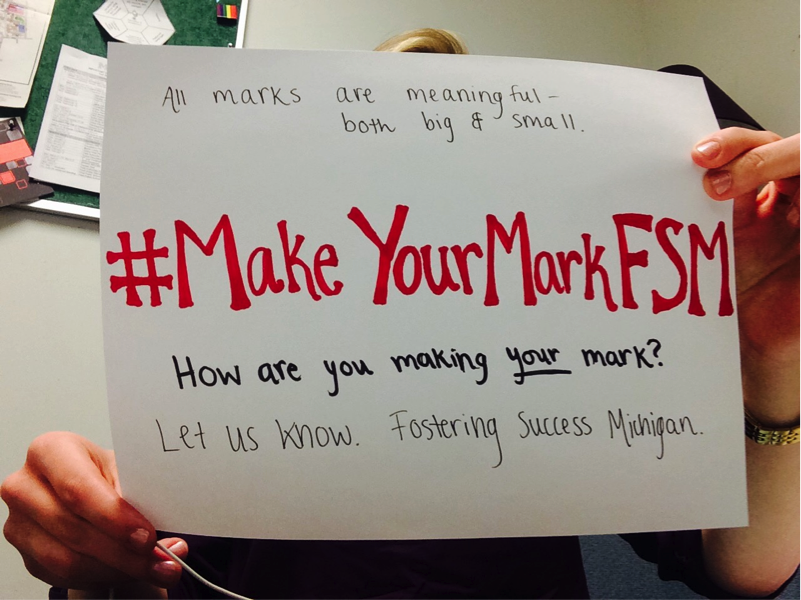 All marks are meaningful-
both big & small.
#MakeYourMarkFSM
How are you making your mark?
Let us know. Fostering Success Michigan.